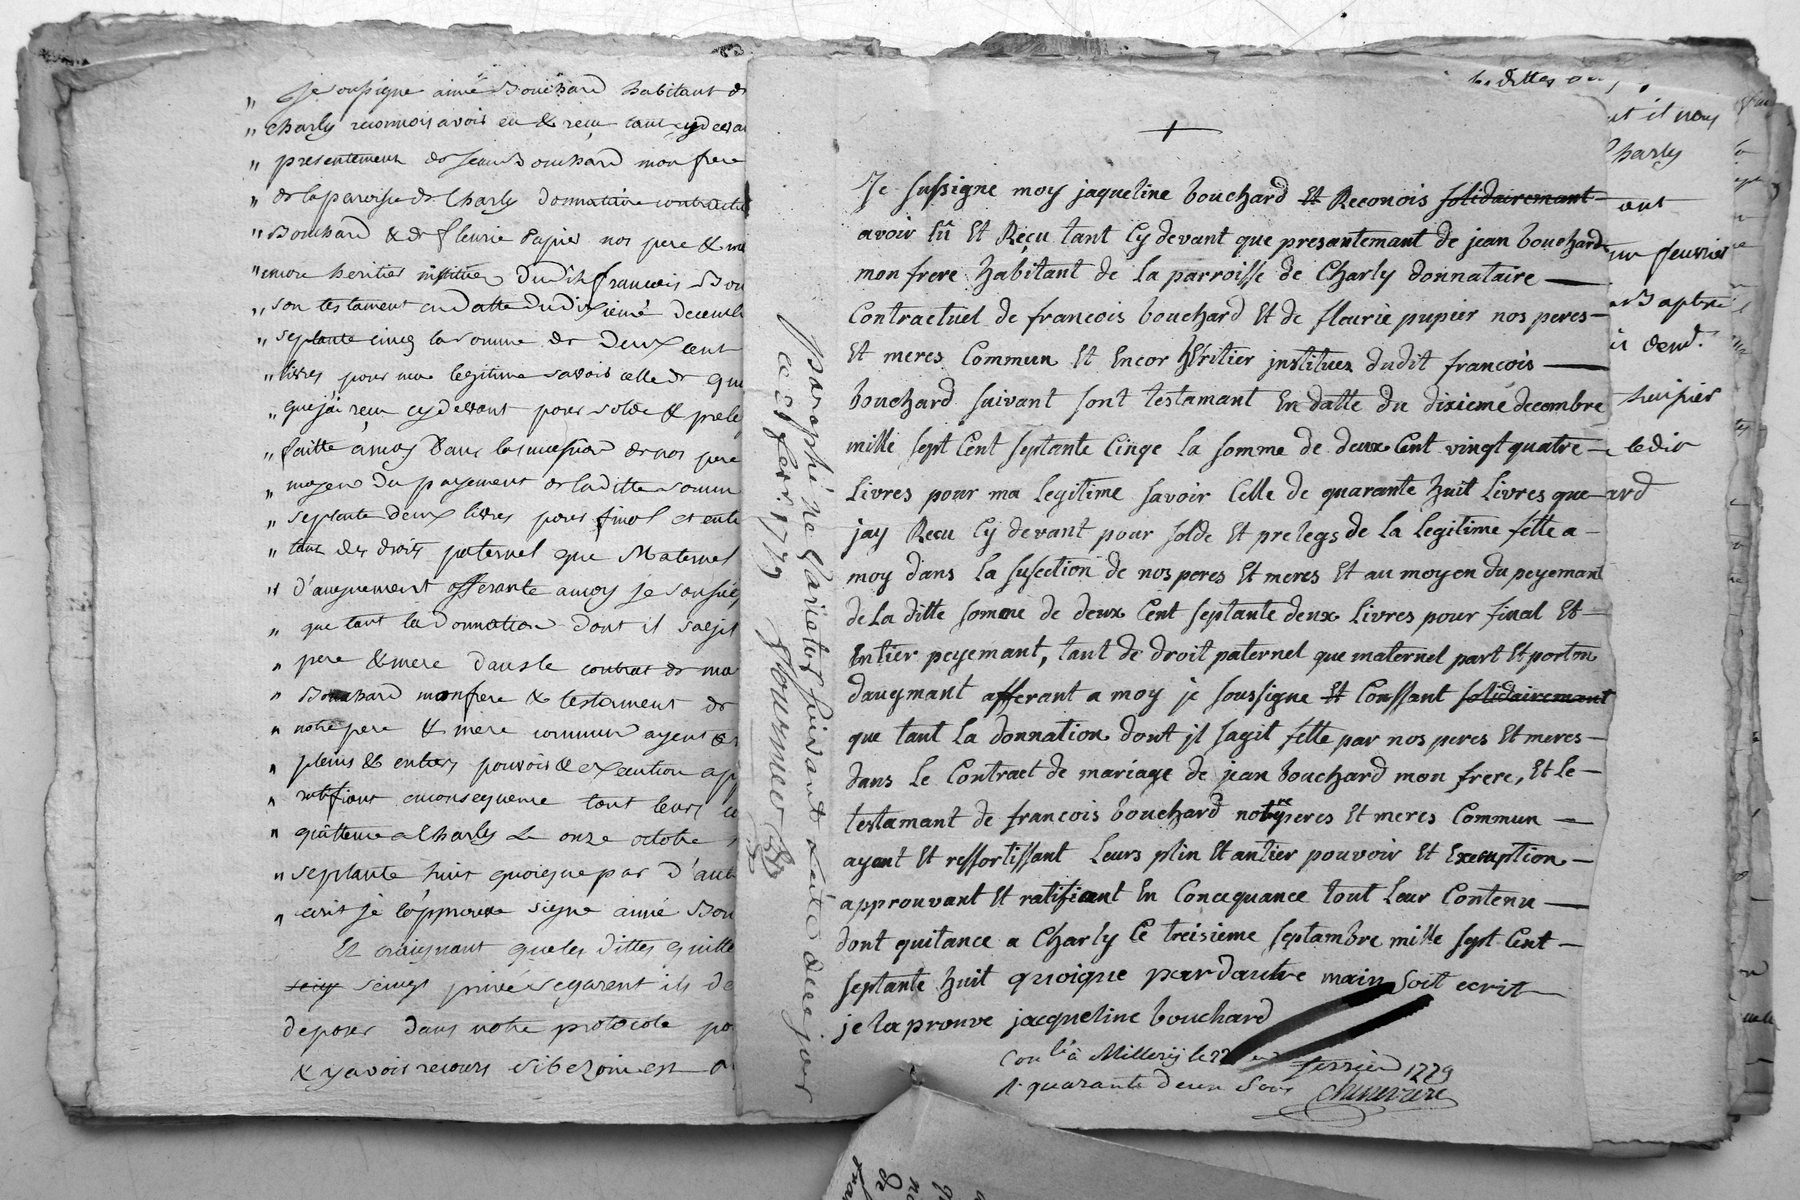 „ Je soussigné aimé Bouchard habitant de
„ Charly reconnois avoir eu & reçu tant cydevant
„ presentement de Jean Bouchard mon frere
„ de la paroisse de Charly donnataire contractuel
„ Bouchard & de fleurie Papier nos pere & me
„ encore heritier institué dudit françois Bou
„ son testament en datte du dixiemé decemb
„ septante cinq la somme de deux cent
„ livres pour ma legitime savoir celle de qua
„ que j'ai reçu cy devant pour solde & preleg
„ faitte à moy dans la succession de nos pere
„ moyen du payement de laditte somme
„ septante deux livres pour final et entie
„ tant des droits paternel que Maternel
„ d'augmment afferante a moy je soussig
„ que tant la donnation dont il s'agit
„ pere & mere dans le contrat de ma
„ Bouchard mon frere & testament de
„ notre pere & mere commun ayent &
„ pleins & entiers pouvoir & execution ap
„ ratifiant en consequence tout leur co
„ quittance a Charly Le onze octobre
„ septante huit quoique par d'aut
„ ecrit je l'approuve signe aimé Bou
Et craignant que les dittes quitt
seings privé s'egarent ils de
deposer dans notre protocole po
& y avoir recours si bezoin est
paraphé ne varietur suivant l'acte de ce jour
ce 21 fevr. 1779
+
Je sussigne moy jaqueline bouchard Et Reconois solidairemant
avoir Eû Et Reçu tant Cy devant que presantemant de jean bouchard
mon frere habitant de la parroisse de Charly donnataire
Contractuel de francois bouchard Et de fleurie pupier nos peres
Et meres Commun Et Encor hÉritier instituez dudit francois
bouchard suivant sont testamant En datte du dixiemé decembre
mille sept Cent septante Cinqe la somme de deux Cent vingt quatre
Livres pour ma Legitime savoir Celle de quarante huit Livres que
jay Recu Cy devant pour solde Et prelegs de la legitime fette a
moy dans la susection de nos peres Et meres Et au moyen du peyemant
de La ditte somme de deux Cent septante deux Livres pour final Et
Entier peyemant, tant de droit paternel que maternel part Et portion
daugmant afferant a moy je soussigne Et Conssant solidairemant
que tant La donnation dont jl sagit fette par nos peres Et meres
dans Le Contract de mariage de jean bouchard mon frere, Et Le
testamant de francois bouchard notre peres Et meres Commun
ayant Et ressortissant Leurs plin Et antier pouvoir Et Exemption
approuvant Et ratifieant En Concequance tout Leur Contenu
dont quitance a Charly Ce treisieme septambre mille sept Cent
septante huit quoique par dautre main soit ecritt
je la prouve jacqueline bouchard
Con.lé à Millery le 22 fevrier 1779
R. quarante deux sous
ut il nous
Charly
ont
fevrier
Baptiste
huissier
ledit
ard